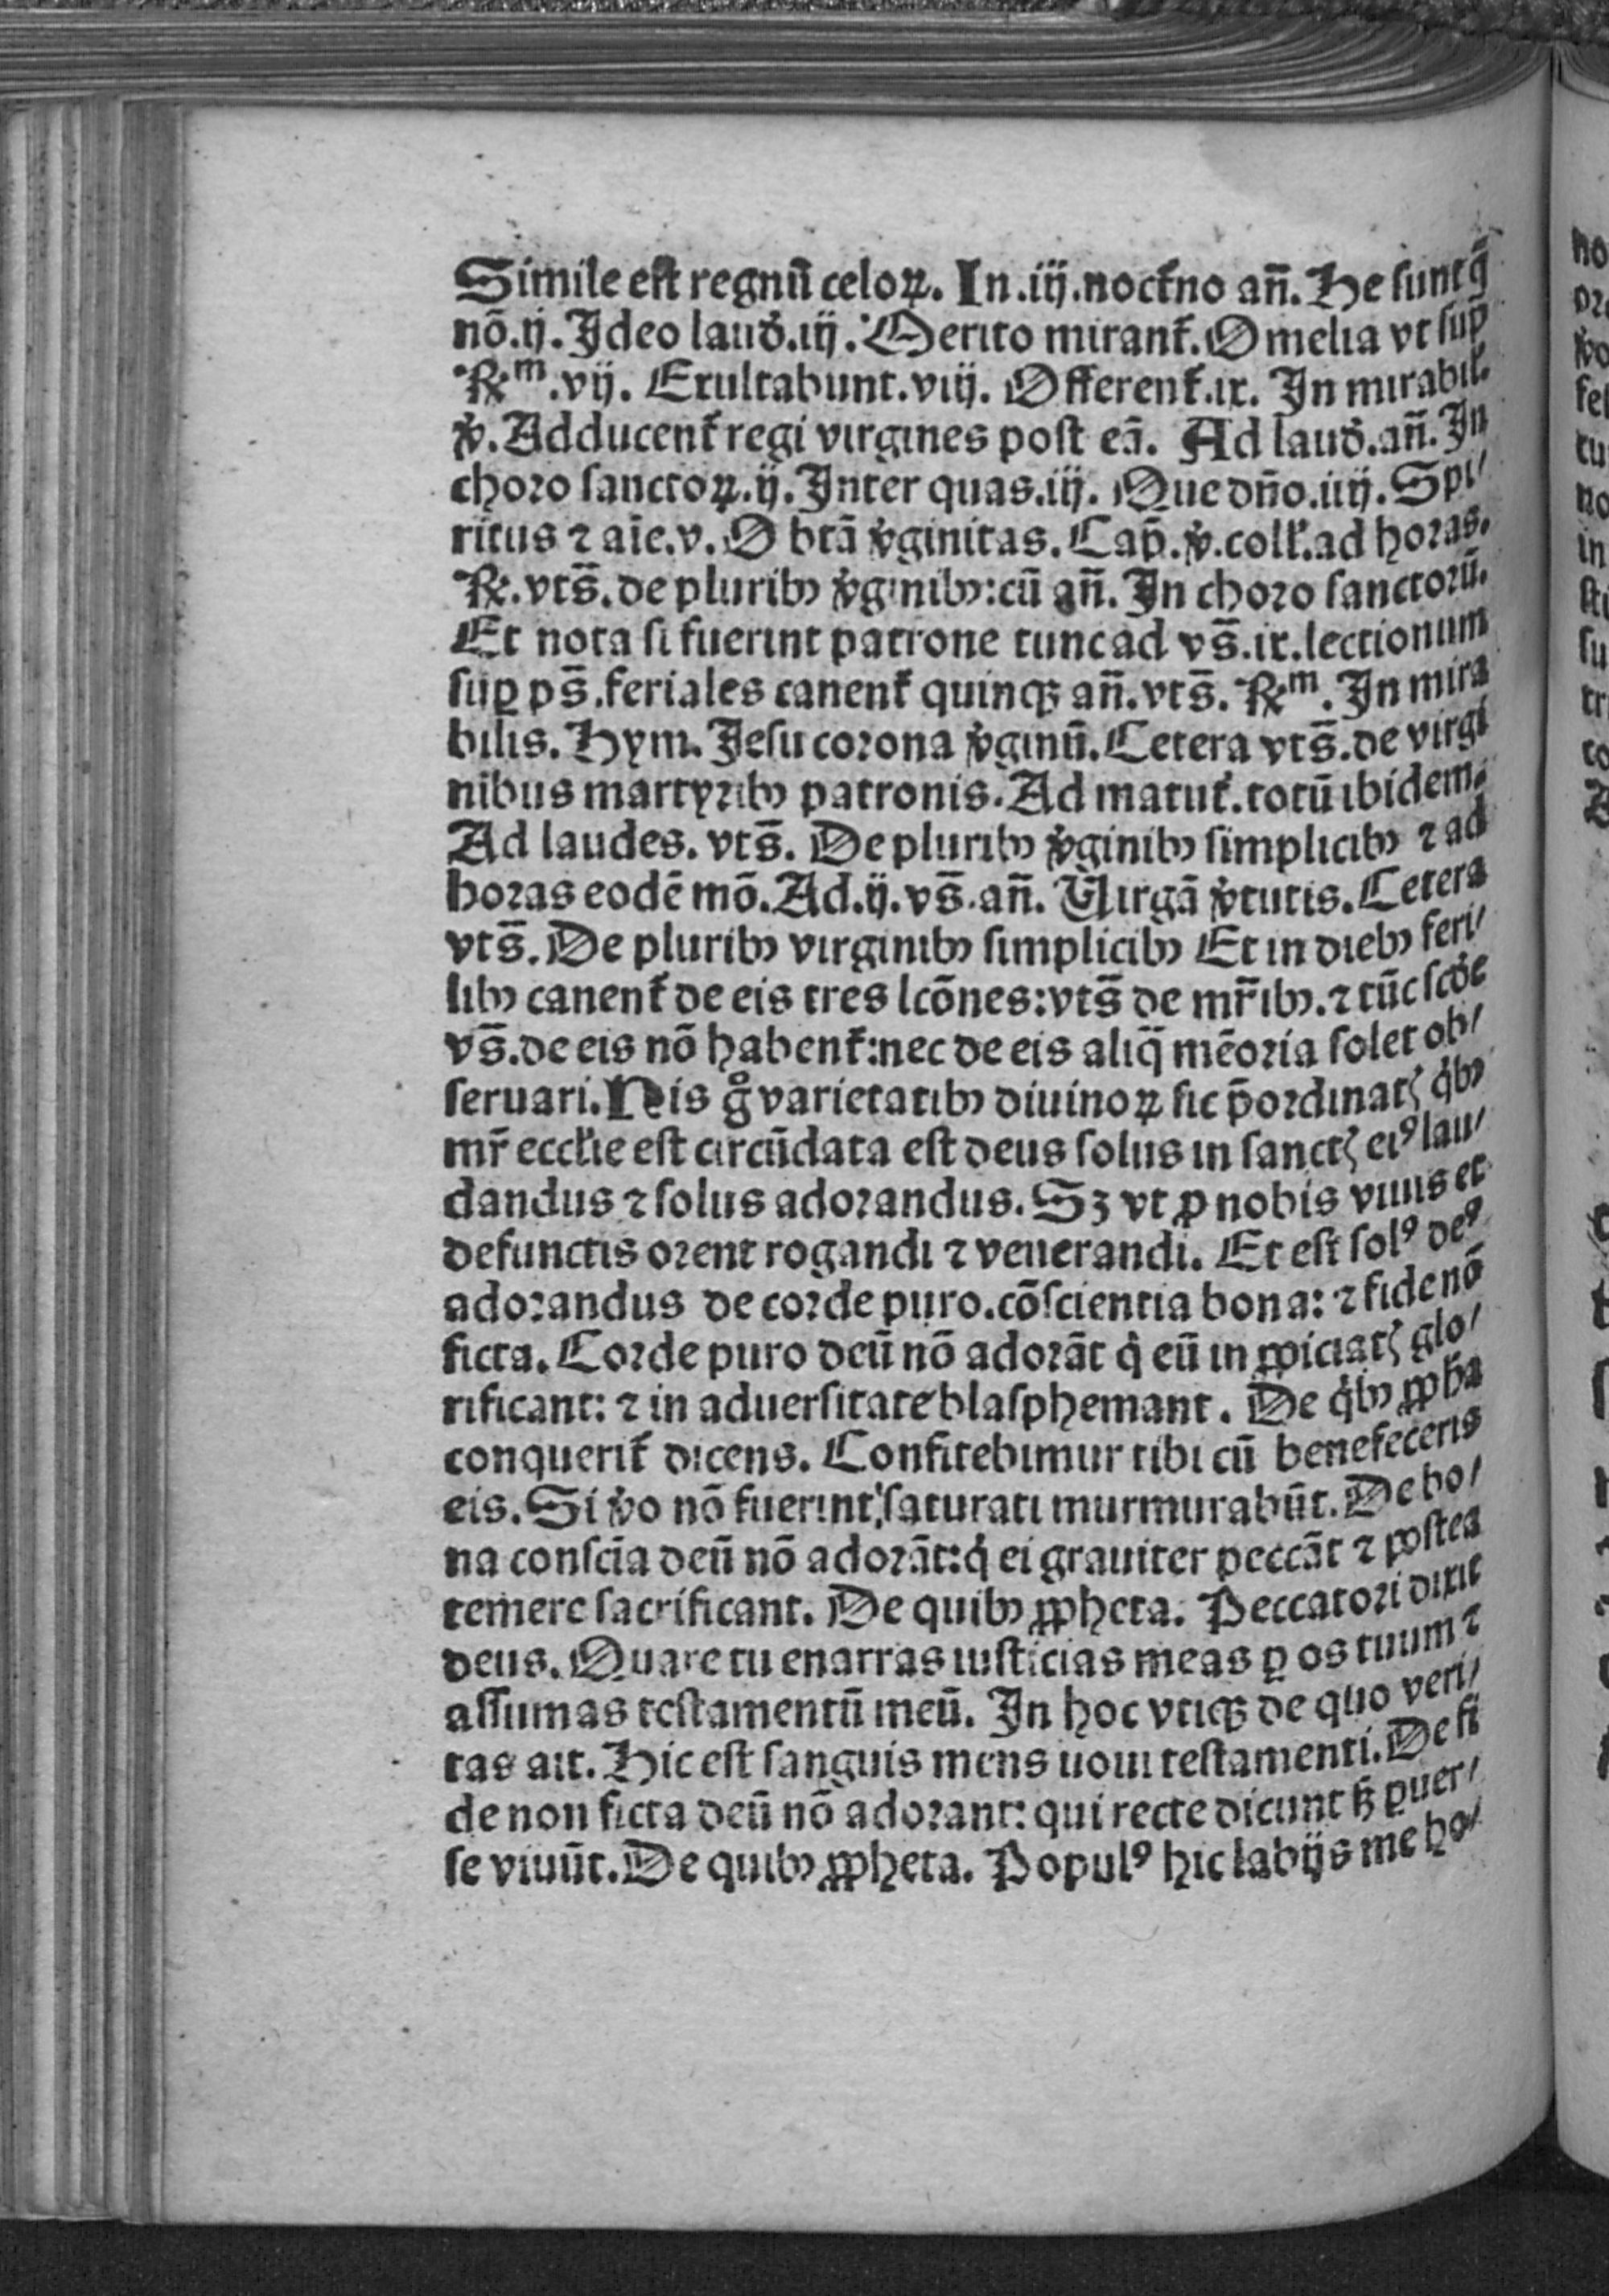 Simile est regnū celoꝝ. In .iij. nocťno añ. He sunt q̄
nō. ij. Ideo laud̾. iij. Merito miranť. Omelia vt sup̄
℟ᵐ. vij. Exultabunt. viij. Offerenť. ix. In mirabil̾.
v̾. Adducenť regi virgines post eā. Ad laud̾. añ. In
choro sanctoꝝ. ij. Inter quas. iij. Que dño. iiij. Spi⸗
ritus ⁊ aīe. v. O btā v̾ginitas. Cap̄. v̾. coll̾. ad horas.
℟. vts̄. de pluribꝰ v̾ginibꝰ: cū añ. In choro sanctorū.
Et nota si fuerint patrone tunc ad vs̄. ix. lectionum
sup ps̄. feriales canenť quinqꝫ añ. vts̄. ℟ᵐ. In mira
bilis. Hym. Jesu corona v̾ginū. Cetera vts̄. de virgi
nibus martyribꝰ patronis. Ad matuť. totū ibidem.
Ad laudes. vts̄. De pluribꝰ v̾ginibꝰ simplicibꝰ ⁊ ad
horas eodē mō. Ad. ij. vs̄. añ. Virgā v̾tutis. Cetera
vts̄. De pluribꝰ virginibꝰ simplicibꝰ Et in diebꝰ feri⸗
libꝰ canenť de eis tres lcōnes: vts̄ de mr̄ibꝰ. ⁊ tūc scd̾e
vs̄. de eis nō habenť: nec de eis aliq̄ mēoria solet ob⸗
seruari. His gͦ varietatibꝰ diuinoꝝ sic p̄ordinatꝭ q̾bꝰ
mr̄ eccl̾ie est circūdata est deus solus in sanctꝭ eiꝰ lau⸗
dandus ⁊ solus adorandus. Sꝫ vt ꝓ nobis viuis et
defunctis orent rogandi ⁊ venerandi. Et est solꝰ deꝰ
adorandus de corde puro. cōscientia bona: ⁊ fide nō
ficta. Corde puro deū nō adorāt q̾ eū in ꝓpiciatꝭ glo⸗
rificant: ⁊ in aduersitate blasphemant. De q̾bꝰ ꝓpha
conqueriť dicens. Confitebimur tibi cū benefeceris
eis. Si v̾o nō fuerint saturati murmurabūt. De bo⸗
na consciā deū nō adorāt: q̾ ei grauiter peccāt ⁊ postea
temere sacrificant. De quibꝰ ꝓpheta. Peccatori dixit
deus. Quare tu enarras iusticias meas ꝑ os tuum ⁊
assumas testamentū meū. In hoc vtiqꝫ de quo veri⸗
tas ait. Hic est sanguis meus noui testamenti. De fi
de non ficta deū nō adorant: qui recte dicunt sꝫ ꝑuer⸗
se viuūt. De quibꝰ ꝓpheta. Populꝰ hic labijs me ho⸗